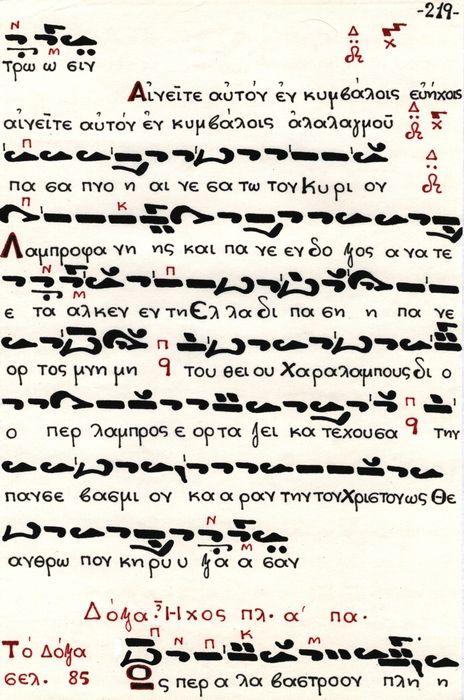 -219-
τρω ω σιν
Αἰνεῖτε αὐτόν ἐν κυμβάλοις εὐήχοις
αἰνεῖτε αὐτόν ἐν κυμβάλοις ἀλαλαγμοῦ
πα σα πνο η αι νε σα τω τον Κυ ρι ον
Λαμπροφα νη ης και πα νε εν δο ξος α να τε
ε τα αλκεν εν τη Ελ λα δι πα ση η πα νε
ορ τος μνη μη του θει ου Χαραλαμπους δι ο
ο περ λαμπρος ε ορ τα ζει κα τεχουσα την
πανσε βασμι ον κα α ραν την του Χριστον ως Θε
ανθρω πον κη ρυ υ ξα α σαν
Δόξα Ἦχος πλ. α΄ πα.
Τό Δόξα
σελ. 85
Ο ς περ α λα βαστρον πλη η